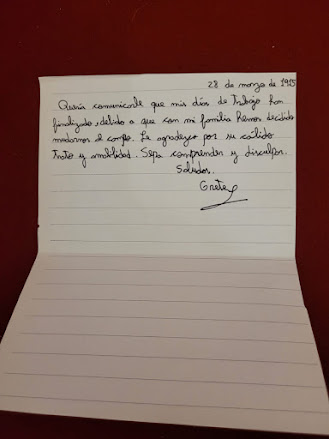 28 de marzo de 1915
Quería comunicarle que mis días de trabajo han
finalizado, debido a que con mi familia hemos decidido
mudarnos al campo. Le agradezco por su cálido
trato y amabilidad. Sepa comprender y disculpas.
Saludos.
Grete